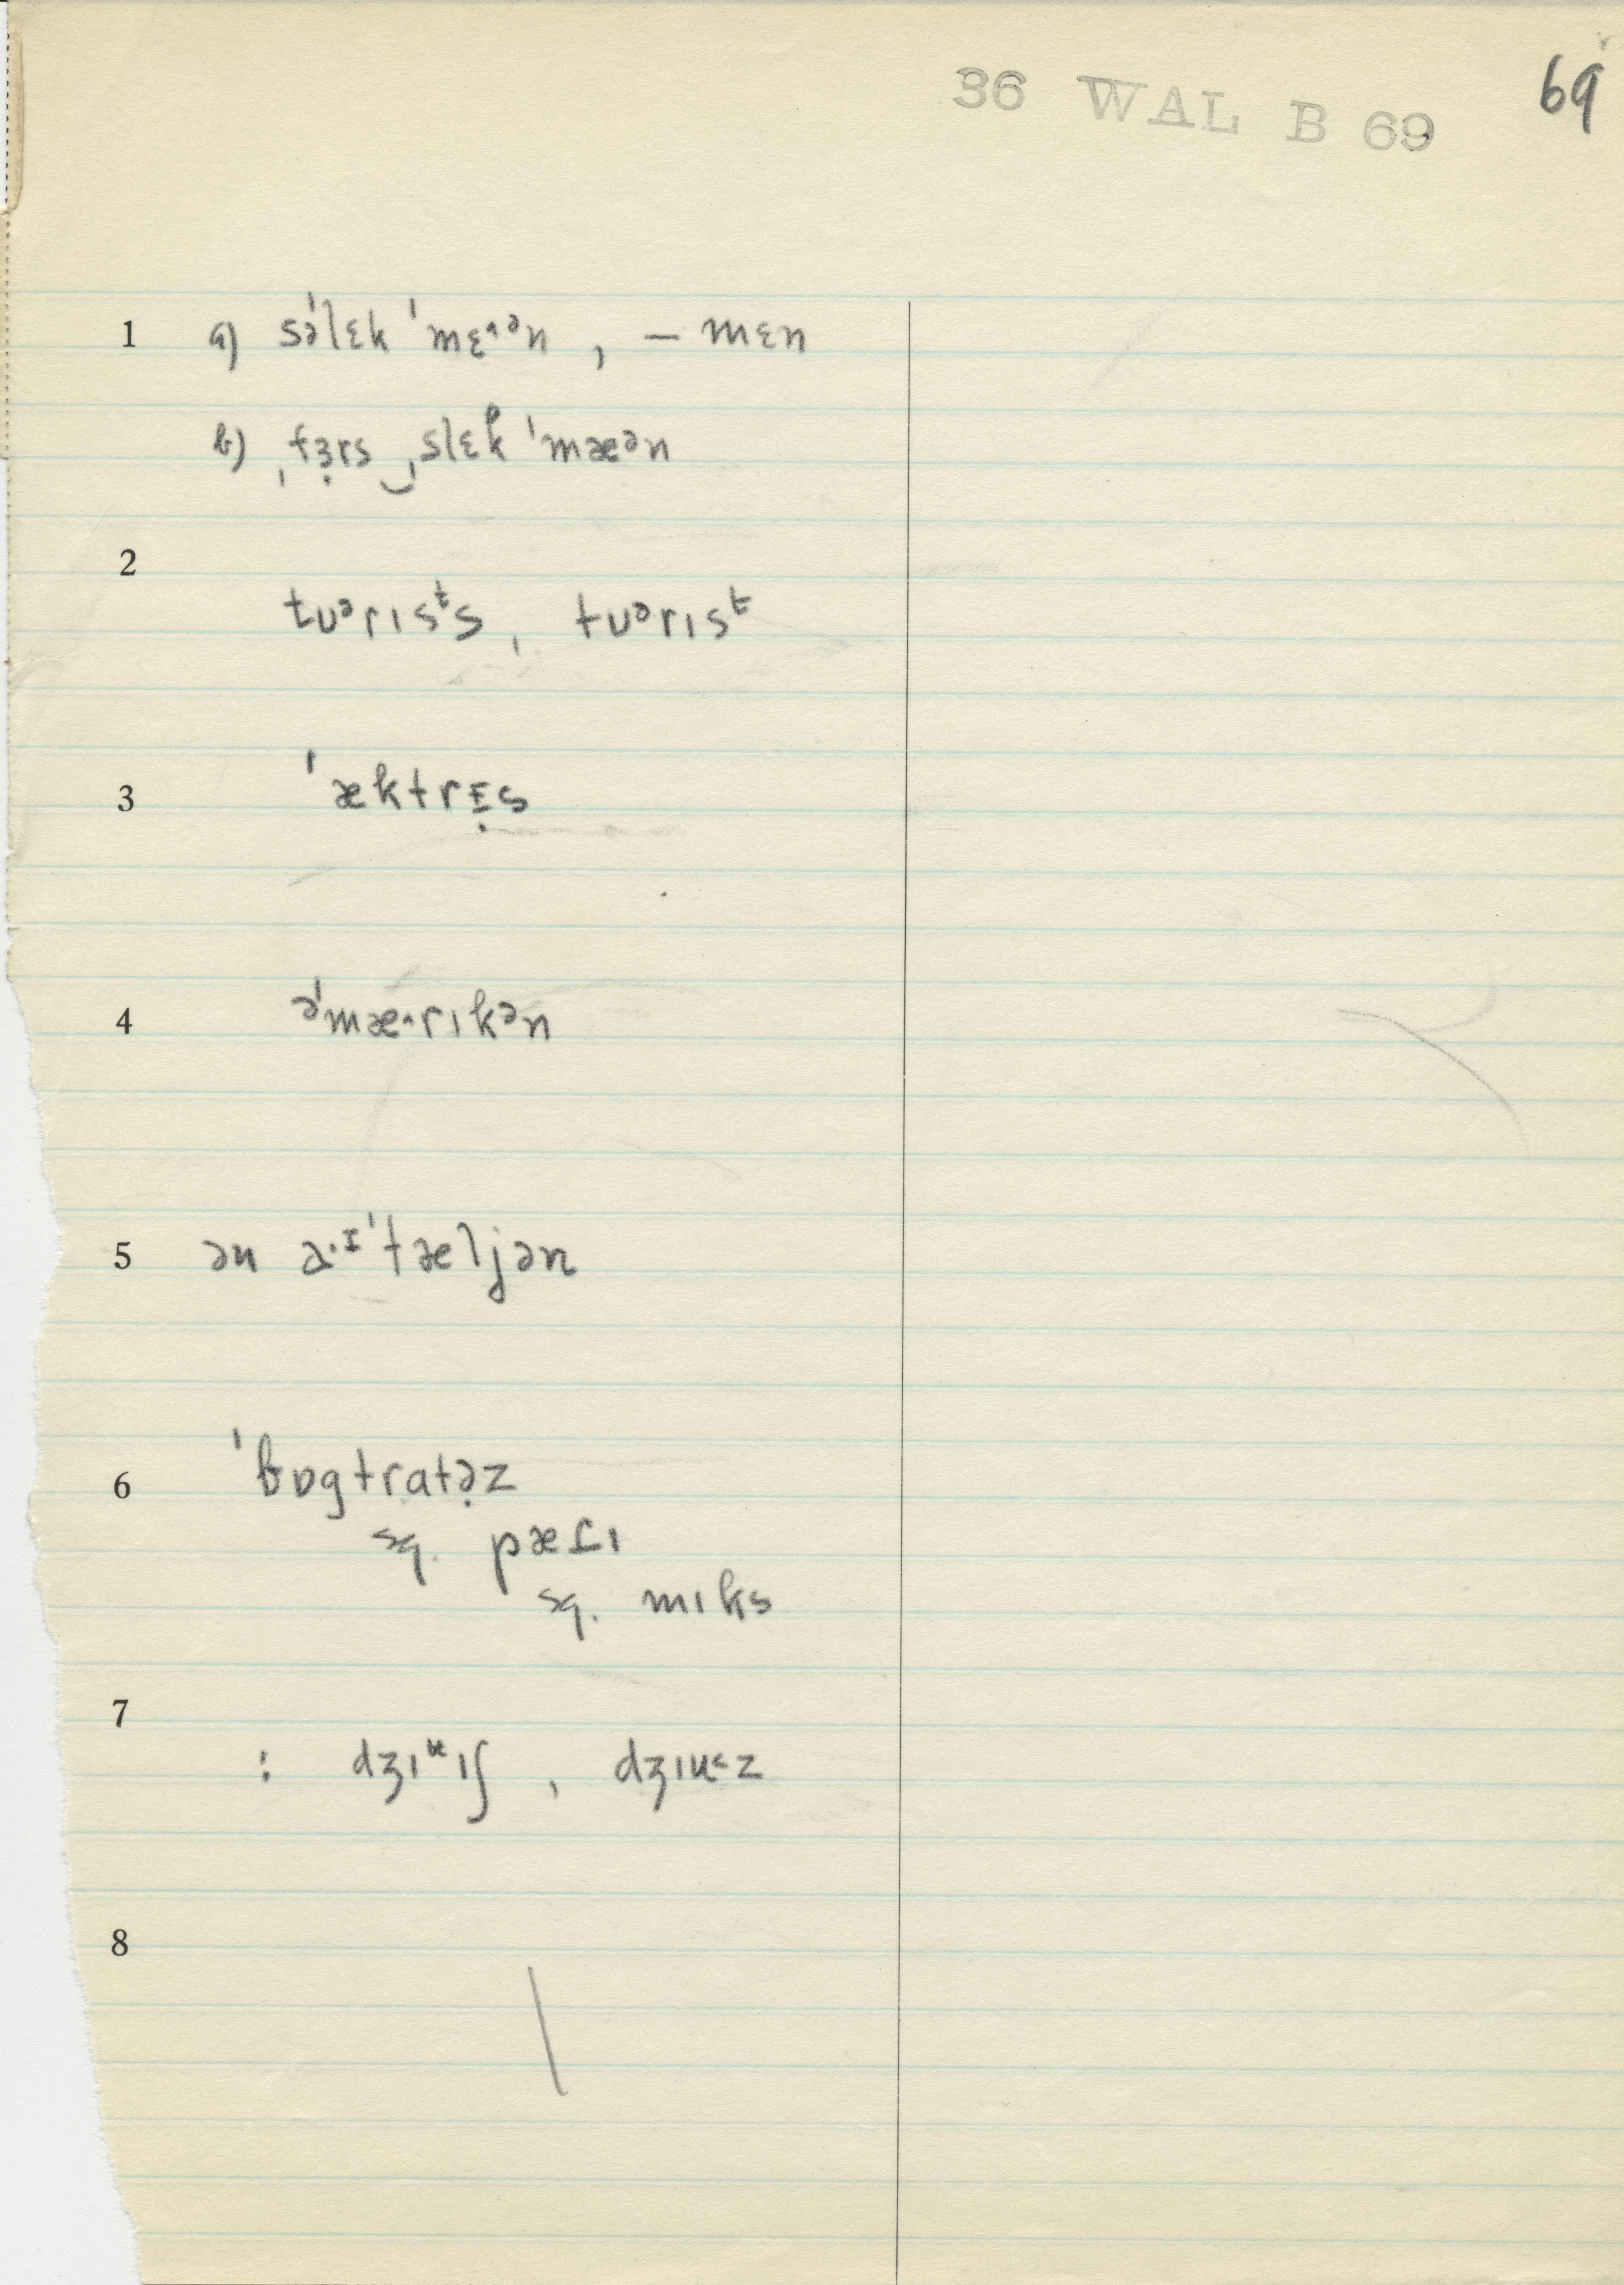 36 WAL B 69 69
1 a) səˈlɛk ˈmɛ˄ᵊn , – mɛn
b) ˌfɜ̣rs ‿ˌslɛk ˈmæᵊn
2
tuᵊrɪsᵗs , tuᵊrɪsᵗ
3 ˈæktrɛ̣s
4 əˈmæ˄rɪkən
5 ən a·ɪˈtæljən
6 ˈbɒgtratə̣z
sq. pærɪ
sq. mɪks
7
: dʒɪᵘɪʃ , dʒɪu˂z
8